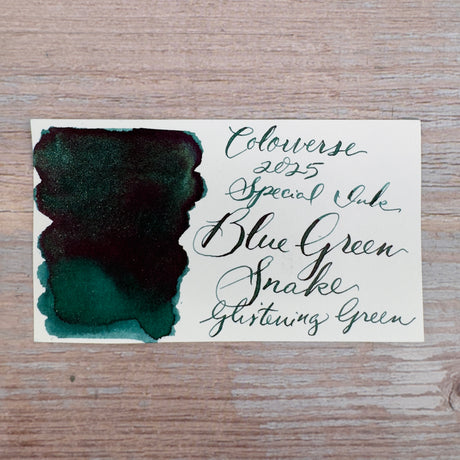 Colorverse
2025
Special Ink
Blue Green
Snake
Glistening Green